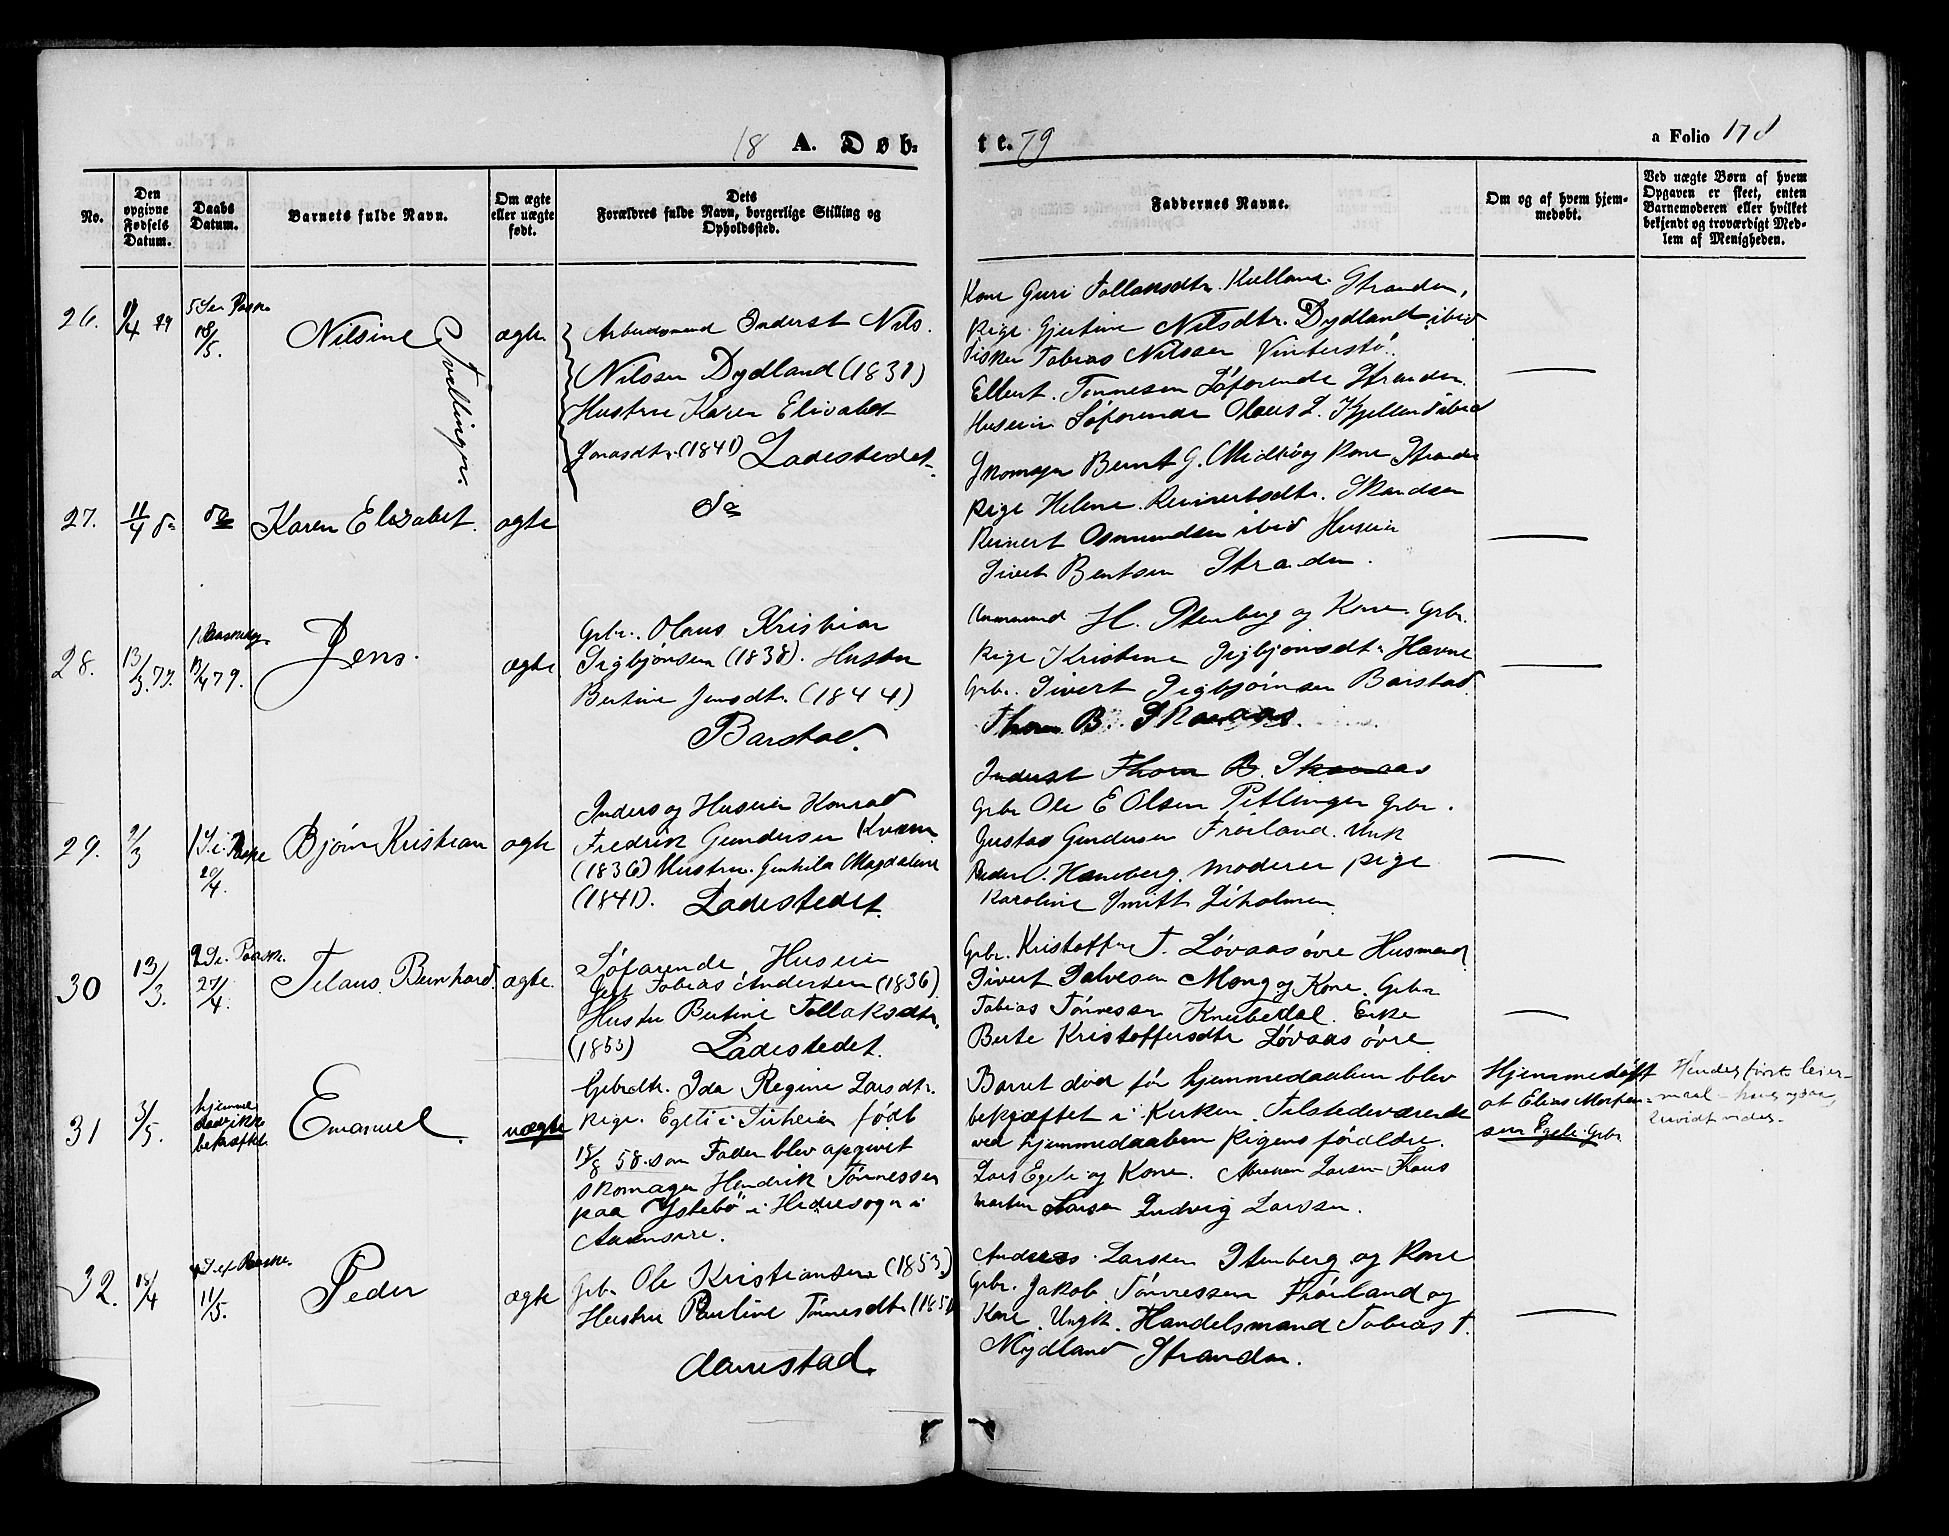 18 A. Døb-
te. 79
a Folio 178
No.
Den
opgivne
Fødsels
Datum.
Daabs
Datum.
Barnets fulde Navn.
Om ægte
eller uægte
født.
Dets
Forældres fulde Navn, borgerlige Stilling og
Opholdssted.
Faddernes Navne.
Om og af hvem hjem-
medøbt.
Ved uægte Børn af hvem
Opgaven er skeet, enten
Barnemoderen eller hvilket
bekjendt og troværdigt Med-
lem af Menigheden.
26.
11/4 79
18/5.
Nilsine
Tvillinger.
ægte
Arbeidsmand Inderst Nils
Nilssen Dydland (1831)
Hustru Karen Elisabet
Jonasdtr. (1841) Ladestedet
Kone Guri Tollaksdtr. Stranden,
Pige Gjertine Nilsdtr. Dydland ibid
Fisker Tobias Nilssen Vinterstø
Ellert Tønnesen Søfarende Stranden.
Huseier Søfarende Olaus L. Kjelland ibid
27.
11/4 do
do
Karen Elisabet.
ægte
do
Skomager Bernt G. Midbø og Kone Stranden
Pige Helene Reinertsdtr.
Reinert Osmundsen ibid Huseier
Sivert Bentsen Stranden.
28.
13/3.79.
79.
Jens.
ægte
Grbr. Olaus Kristian
Sigbjønsen (1838). Hustru
Bertine Jensdtr. (1844)
Barstad.
H. Stenberg og Kone. Grbr.
Pige Kristine Sigbjønsdtr Havne
Grbr. Sivert Sigbjørnsen Barstad.
29.
9/3
20/4.
Bjørn Kristian
ægte
Inders og Huseier Konrad
Fredrik Gundersen Kvam
(1836) Hustru Magdalene
(1841). Ladestedet
Inderst Thorn B.
Grbr Ole E Olsen Petlinger Grbr.
Gustav Gundersen Frøiland. Unk
Peder O. Haneberg. Moderen pige
Karoline Smitt
30
13/3.
2 S. e. Paaske.
27/4.
Bernhard
ægte
Søfarende Huseier
Tobias Andersen (1836)
Hustru Bertine Tollaksdtr.
(1853) Ladestedet.
Grbr. Kristoffer T. Løvaas øvre Husmand
Sivert Salvesen Mong og Kone. Grbr
Tobias Tønnessen Knubedal. Enke
Berte Kristoffersdtr Løvaas øvre.
31
3/5.
hjemme
bekræftet
Emanuel.
uægte
Grbrdtr. Ida Regine Larsdtr.
Pige. Egeli i født
18/8 58. som Fader blev opgivet
skomager Hendrik Tønnessen
paa Ystebø i Hedresogn i
Barnet død før hjemmedaaben blev
bekræftet i Kirken. Tilstedeværende
ved hjemmedaaben Pigens forældre.
Lars Egeli og Kone. Abraham Larsen
Martin Larsen Ludvig Larssen.
Hjemmedøbt
af Elias Morten-
sen Egeli. Grbr
Hendes første leier-
maal
32.
18/4
11/5.
Peder
ægte
Grbr Ole Kristiansen (1853)
Hustru Pauline Tønnesdtr
Aarrestad.
Andreas Larsen Stenberg og Kone
Grbr. Jakob Tønnessen Frøiland og
Kone. Ungk. Handelsmand Tobias T.
Mydland Stranden.